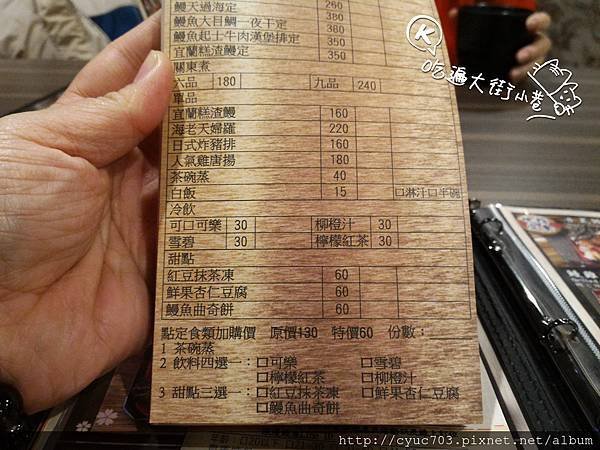 鰻天過海定 260
鰻魚大目鯛一夜干定 380
鰻魚起士牛肉漢堡排定 350
宜蘭糕渣鰻定 350
關東煮
六品 180 九品 240
單品
宜蘭糕渣鰻 160
海老天婦羅 220
日式炸豬排 160
人氣雞唐揚 180
茶碗蒸 40
白飯 15 □淋汁□半碗
冷飲
可口可樂 30 柳橙汁 30
雪碧 30 檸檬紅茶 30
甜點
紅豆抹茶凍 60
鮮果杏仁豆腐 60
鰻魚曲奇餅 60
點定食類加購價 原價130 特價60 份數：
1 茶碗蒸
2 飲料四選一：□可樂 □雪碧
□檸檬紅茶 □柳橙汁
3 甜點三選一：□紅豆抹茶凍 □鮮果杏仁豆腐
□鰻魚曲奇餅
K 吃遍大街小巷
http://cyuc703.pixnet.net/album